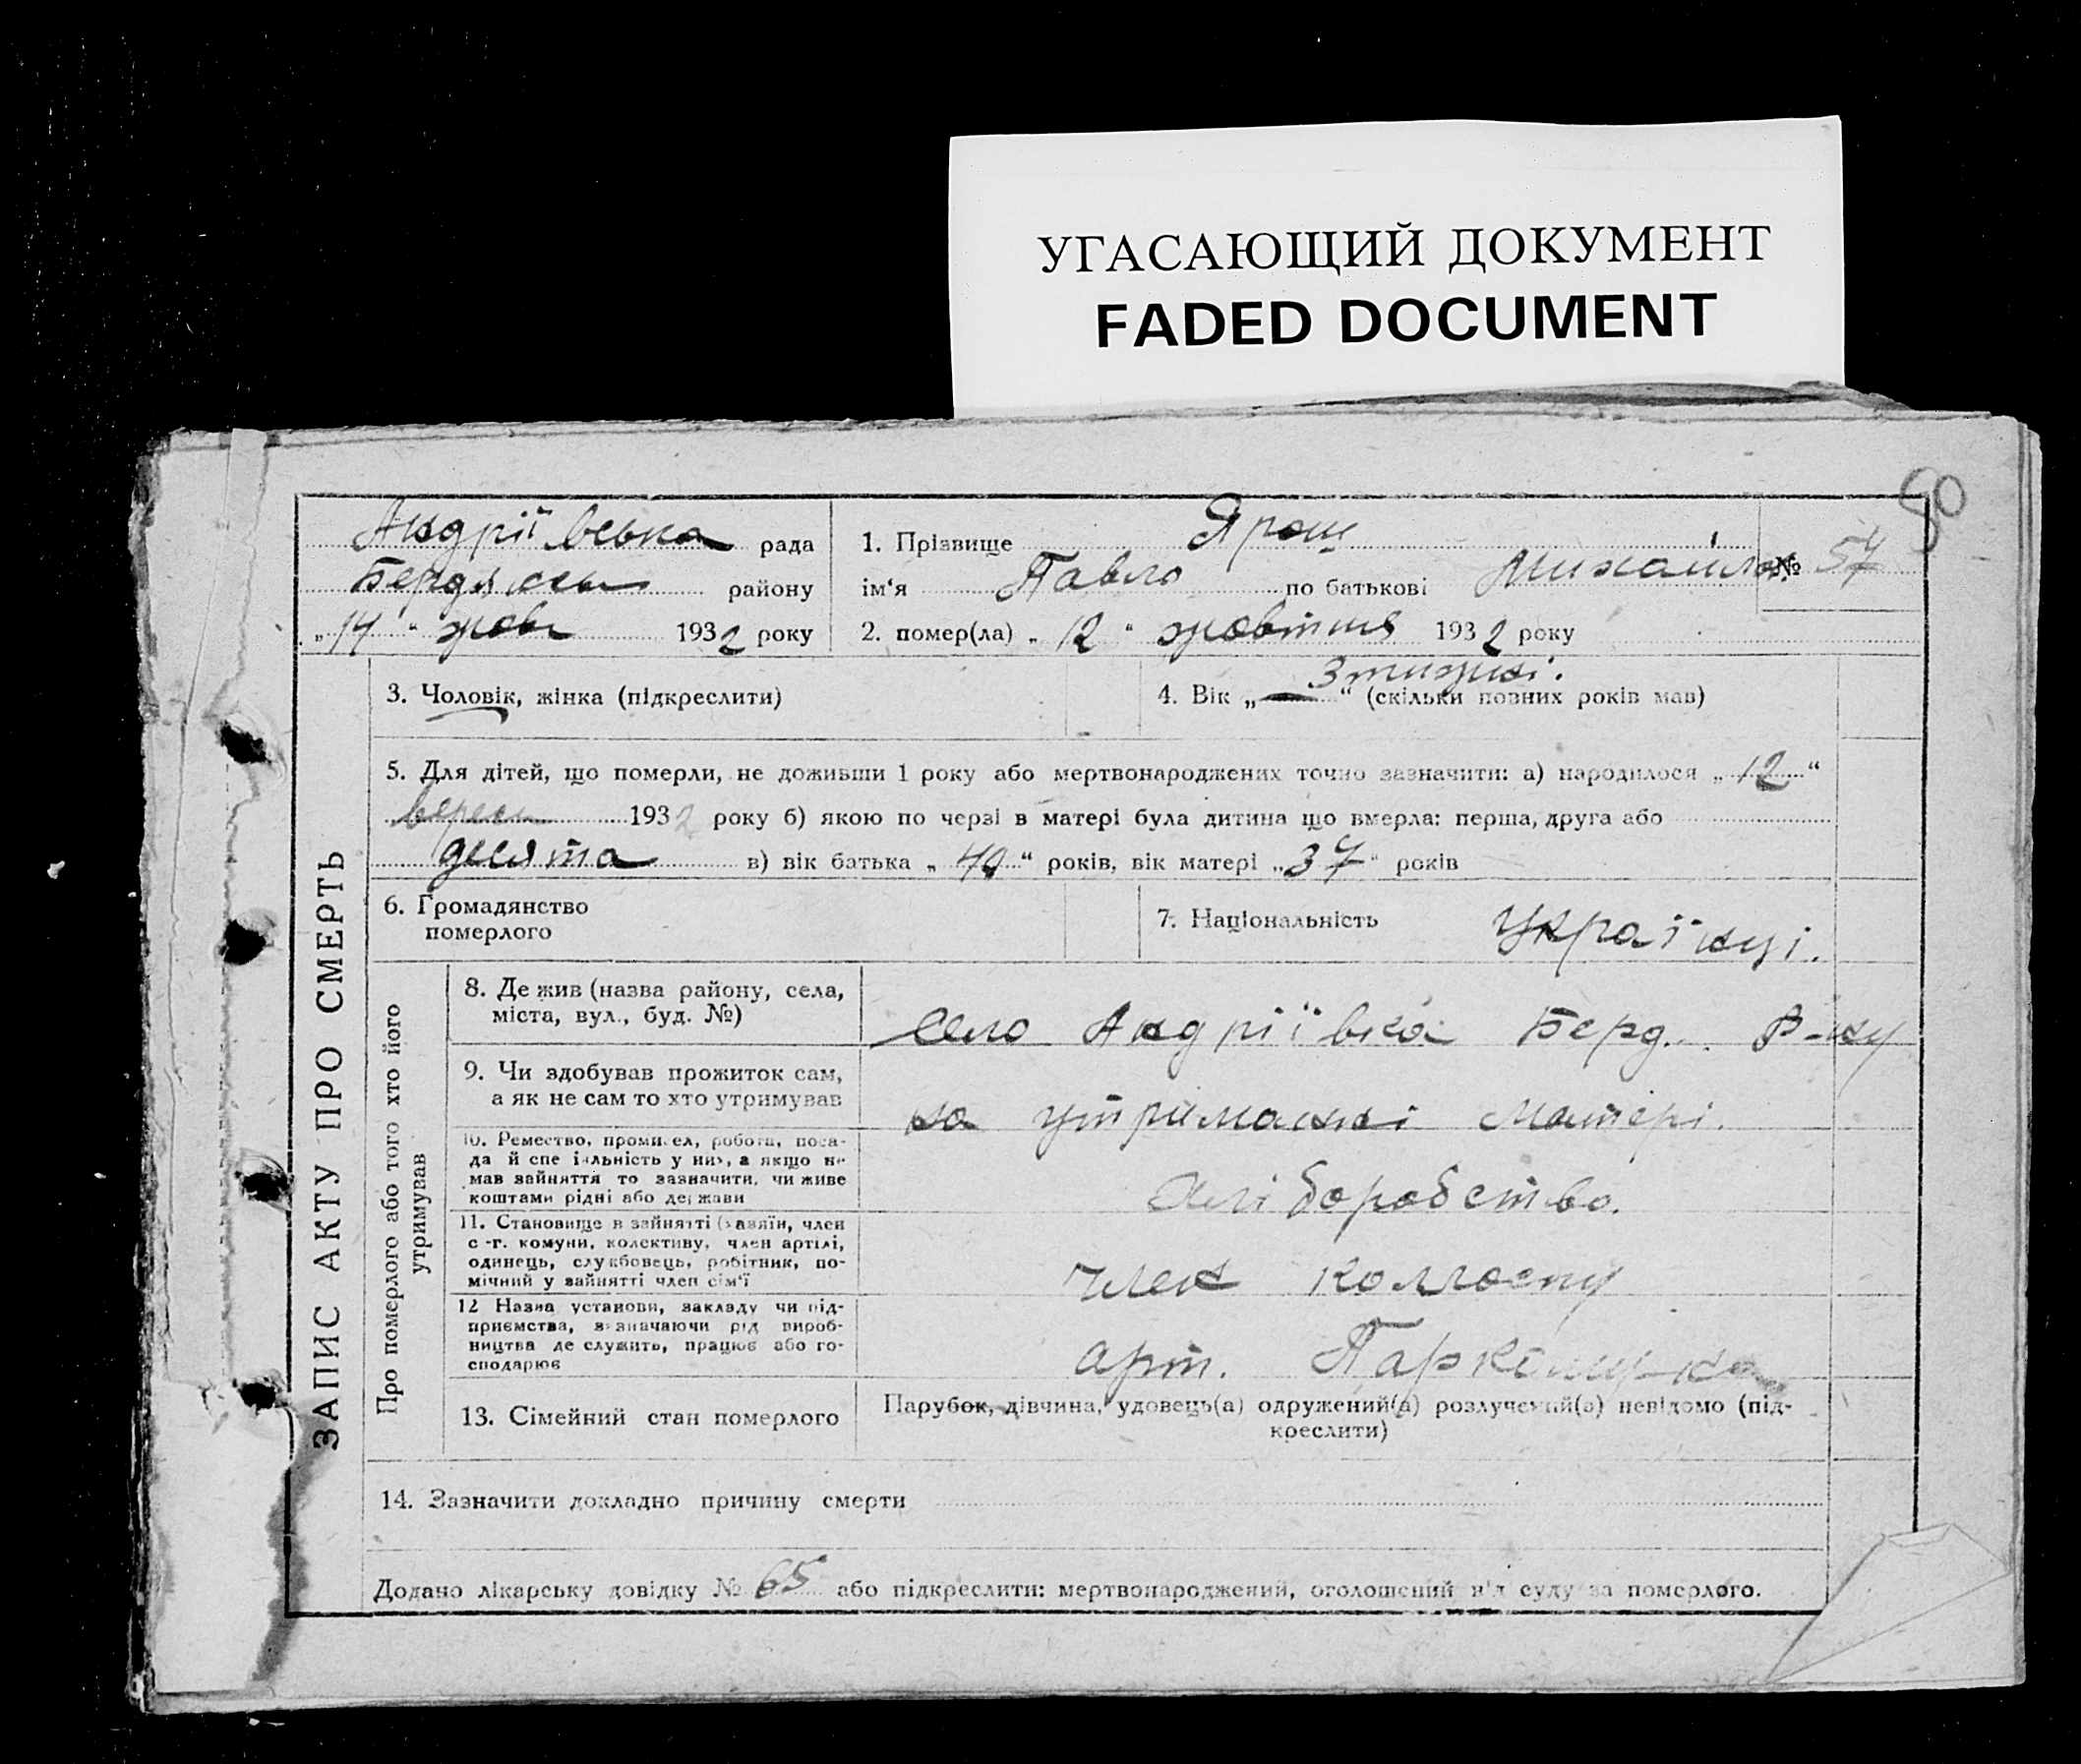 УГАСАЮЩИЙ ДОКУМЕНТ
FADED DOCUMENT
80
Андріївська рада
Бердянськ району
„14“ жовт 1932 року
1. Прізвище Ярош
ім‘я Павло по батькові Михайлов. № 57
2. помер(ла) „12“ жовтня 1932 року
ЗАПИС АКТУ ПРО СМЕРТЬ
3. Чоловік, жінка (підкреслити)
4. Вік „ “ (скільки повних років мав) 3 тижні.
5. Для дітей, що померли, не доживши 1 року або мертвонароджених точно зазначити: а) народилося „12“
верес 1932 року б) якою по черзі в матері була дитина що вмерла: перша, друга або
десята в) вік батька „40“ років, вік матері „37“ років
6. Громадянство
померлого
7. Національність Українці.
Про померлого або того хто його
утримував
8. Де жив (назва району, села,
міста, вул., буд. №)
село Андріївка Берд. Р-ну
9. Чи здобував прожиток сам,
а як не сам то хто утримував
на утриманні матері.
10. Ремество, промисел, робота, поса-
да й спеціяльність у них, а якщо не
мав зайняття то зазначити, чи живе
коштами рідні або держави
Хліборобство.
11. Становище в зайнятті (хазяїн, член
с.-г. комуни, колективу, член артілі,
одинець, службовець, робітник, по-
мічний у зайнятті член сім‘ї
член колгоспу
12 Назва установи, закладу чи під-
приємства, зазначаючи рід вироб-
ництва де служить, працює або го-
сподарює
арт.
13. Сімейний стан померлого
Парубок, дівчина, удовець(а) одружений(а) розлучений(а) невідомо (під-
креслити)
14. Зазначити докладно причину смерти
Додано лікарську довідку № 65 або підкреслити: мертвонароджений, оголошений від суду за померлого.